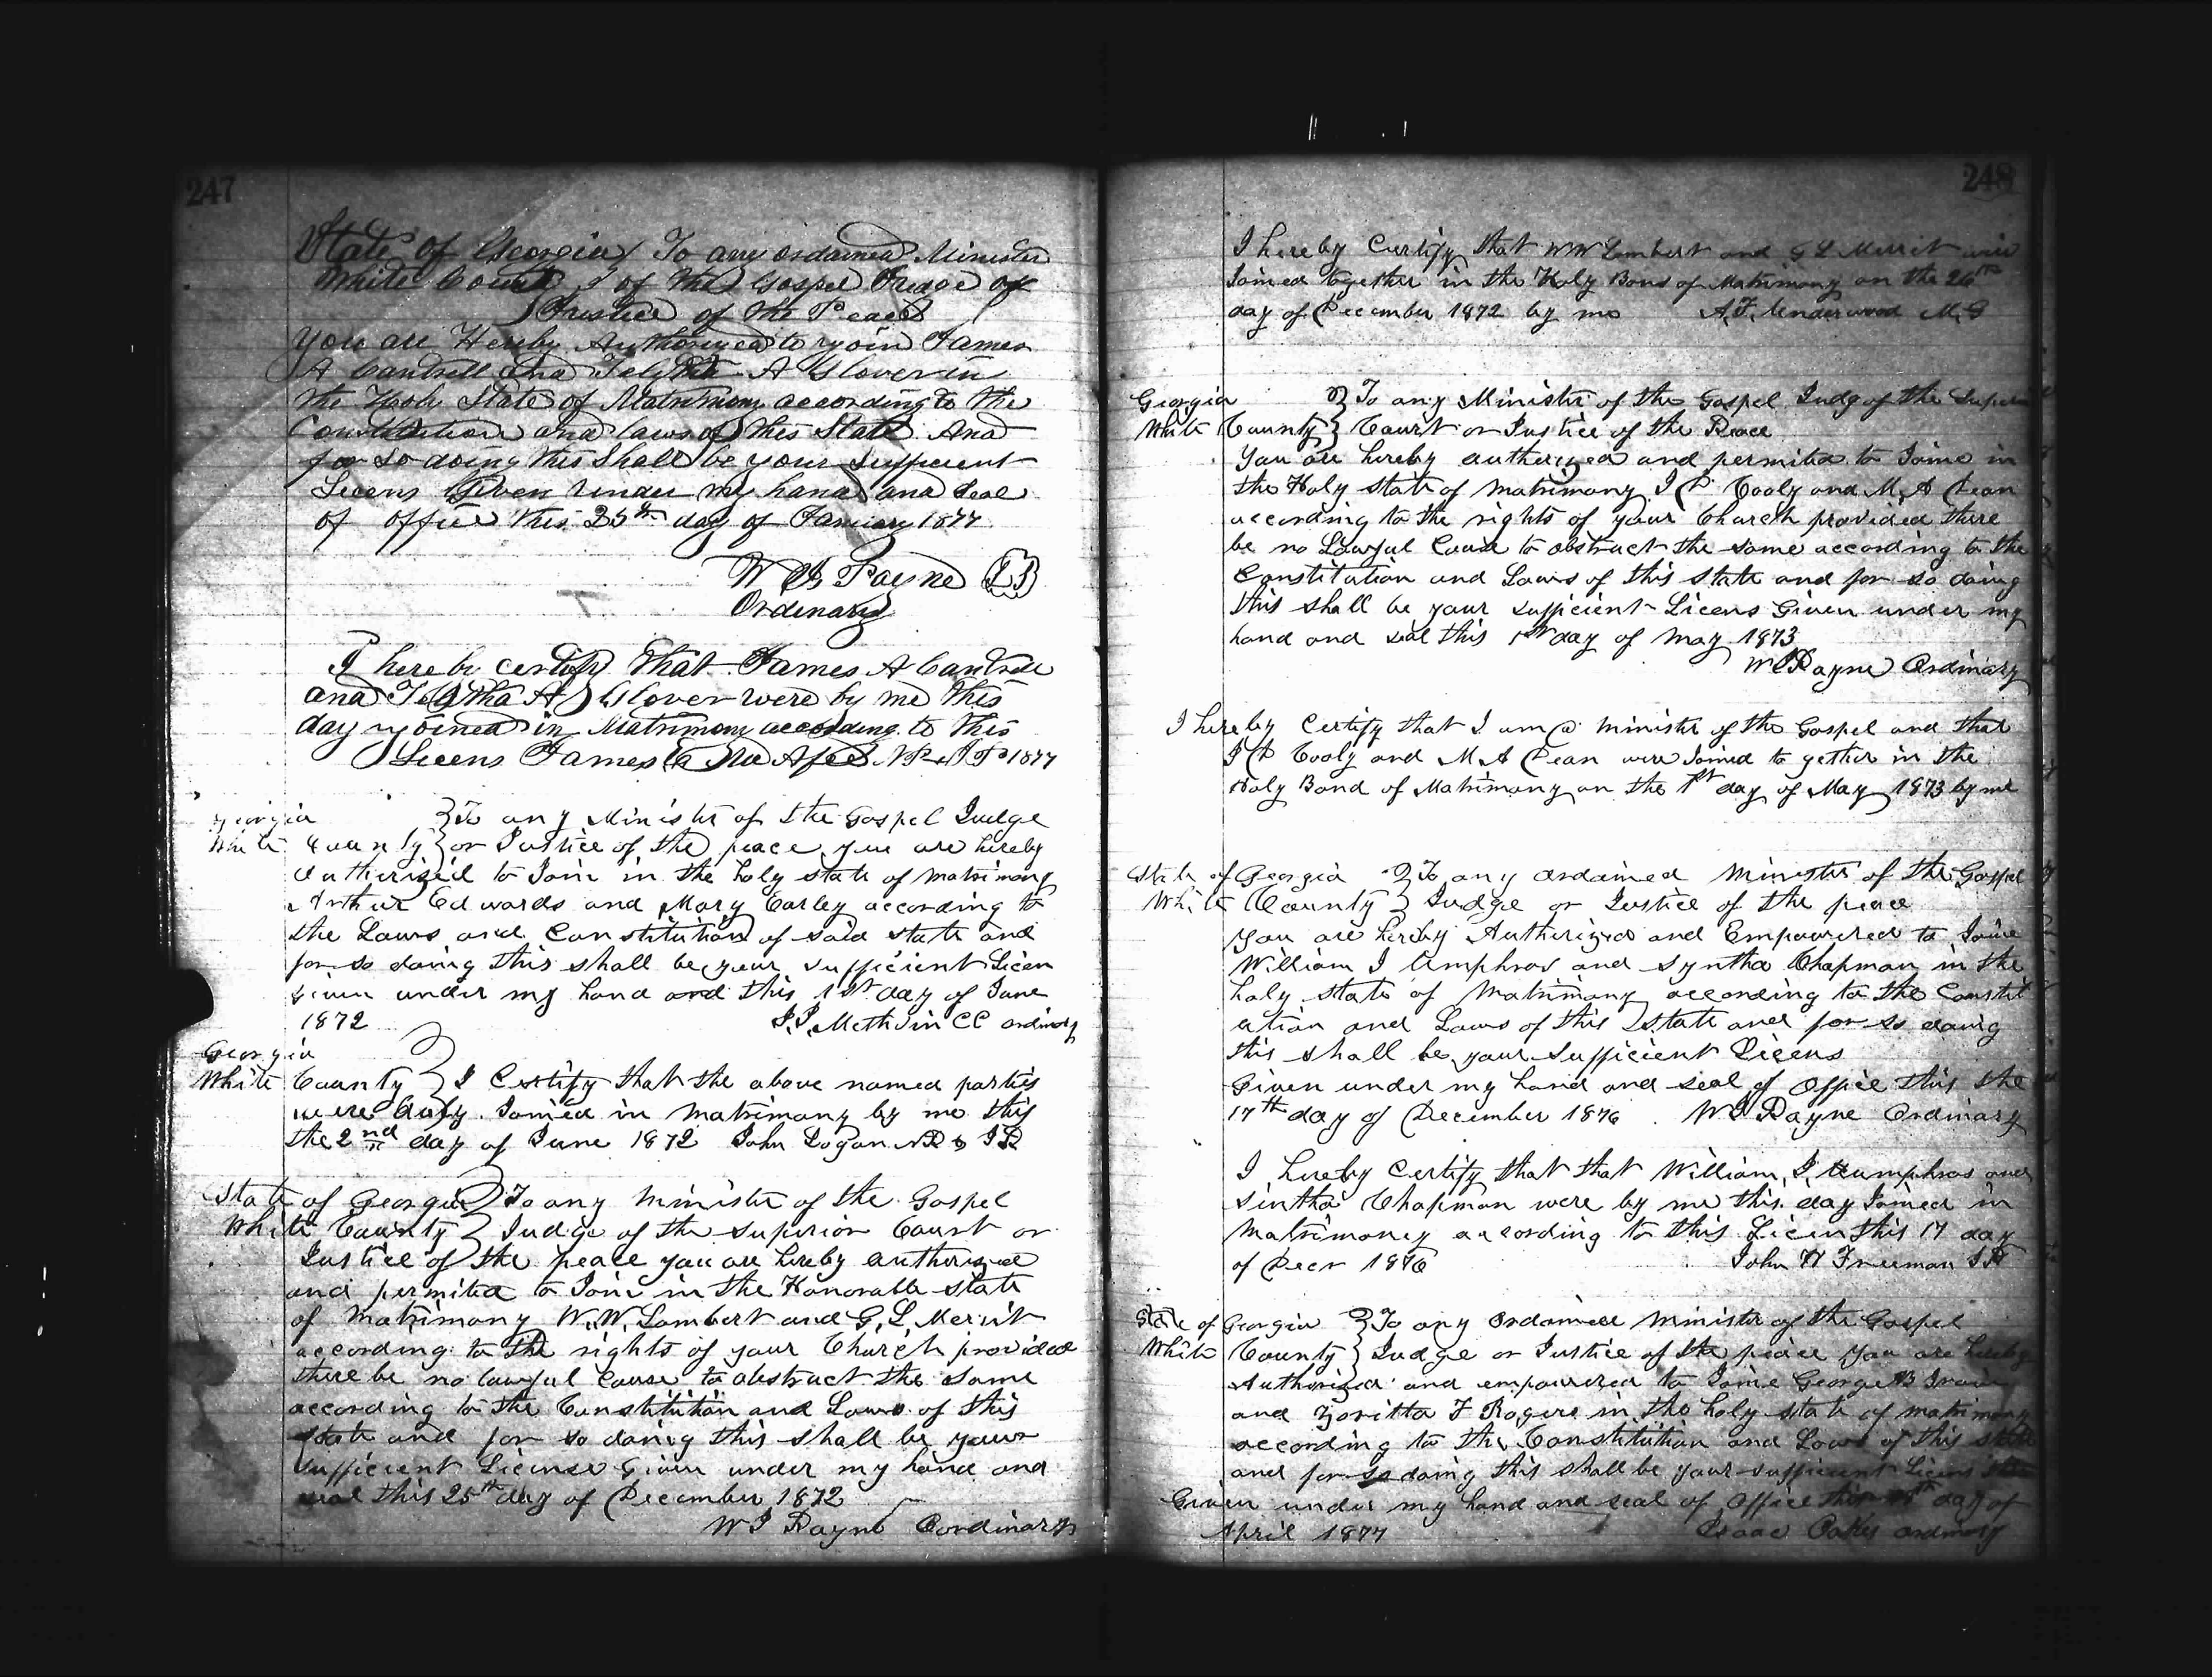 247
State of Georgia To any ordained Minister
White County of the Gospel Judge or
Justice of the Peace
You are Hereby Authorized to join James
A Cantrell And A Glover in
the Holy State of Matrimony according to the
Constitution and laws of this State And
for so doing this shall be your sufficient
Licens Given under my hand and seal
of office this 25th day of January 1877
W G Payne LS
Ordinary
I hereby certify that James A Cantrell
and A Glover were by me this
day joined in Matrimony according to this
Licens James NP & JP 1877
Georgia To any Minister of the Gospel Judge
White County or Justice of the peace you are hereby
Autherized to Join in the holy state of matrimony
Arthur Edwards and Mary Earley according to
the Laws and Constitution of said state and
for so doing this shall be your sufficient Licen
Given under my hand and this 1st day of June
1872 CC ordinary
Georgia
White County I Certify that the above named parties
were duly Joined in Matrimony by me this
the 2nd day of June 1872 John Logan NP & JP
State of Georgia To any Minister of the Gospel
White County Judge of the Superior Court or
Justice of the peace you are hereby authorized
and permited to Join in the Honorable state
of Matrimony W.W. Lambert and G.L. Merrit
according to the rights of your Church provided
there be no lawful cause to obstruct the same
according to the Constitution and Laws of this
state and for so doing this shall be your
sufficient License Given under my hand and
seal this 25th day of December 1872
W G Payne Oordinary
248
I hereby Certify that WW Lambert and G L Merrit were
Joined together in the Holy Bond of Matrimony on the 26th
day of December 1872 by me A.F. Underwood M.G
Georgia To any Minister of the Gospel Judg of the Super
White County Court or Justice of the Peace
You are hereby authorized and permited to Joine in
the Holy state of Matrimony J P Cooly and M, A Dean
according to the rights of your Church provided there
be no Lawful Cause to obstruct the same according to the
Constitution and Laws of this state and for so doing
this shall be your sufficient Licens Given under my
hand and seal this 1st day of May 1873
W G Payne Ordinary
I hereby Certify that I am a minister of the Gospel and that
J P Cooly and M A Dean were Joined to gether in the
Holy Bond of Matrimony on the 1st day of May 1873 by me
State of Georgia To any ordained Minister of the Gospel
White County Judge or Justice of the peace
you are hereby Authorized and Empowered to Joine
William J Umphras and Syntha Chapman in the
holy state of Matrimony according to the Constit
ution and Laws of this state and for so doing
this shall be your sufficient Licens
Given under my hand and seal of office this the
17th day of December 1876 W G Payne Ordinary
I hereby Certify that that William, J, Humphras and
Sintha Chapman were by me this day Joined in
Matrimoney according to this Licen this 17 day
of Decr 1876 John H Freeman JP
State of Georgia To any Ordained Minister of the Gospel
White County Judge or Justice of the peace You are hereby
Authorized and empowered to Joine George B
and F Rogers in the holy state of matrimony
according to the Constitution and Laws of this state
and for so doing this shall be your sufficient Licens
Given under my hand and seal of office this day of
April 1877 Isaac Oakes ordinary